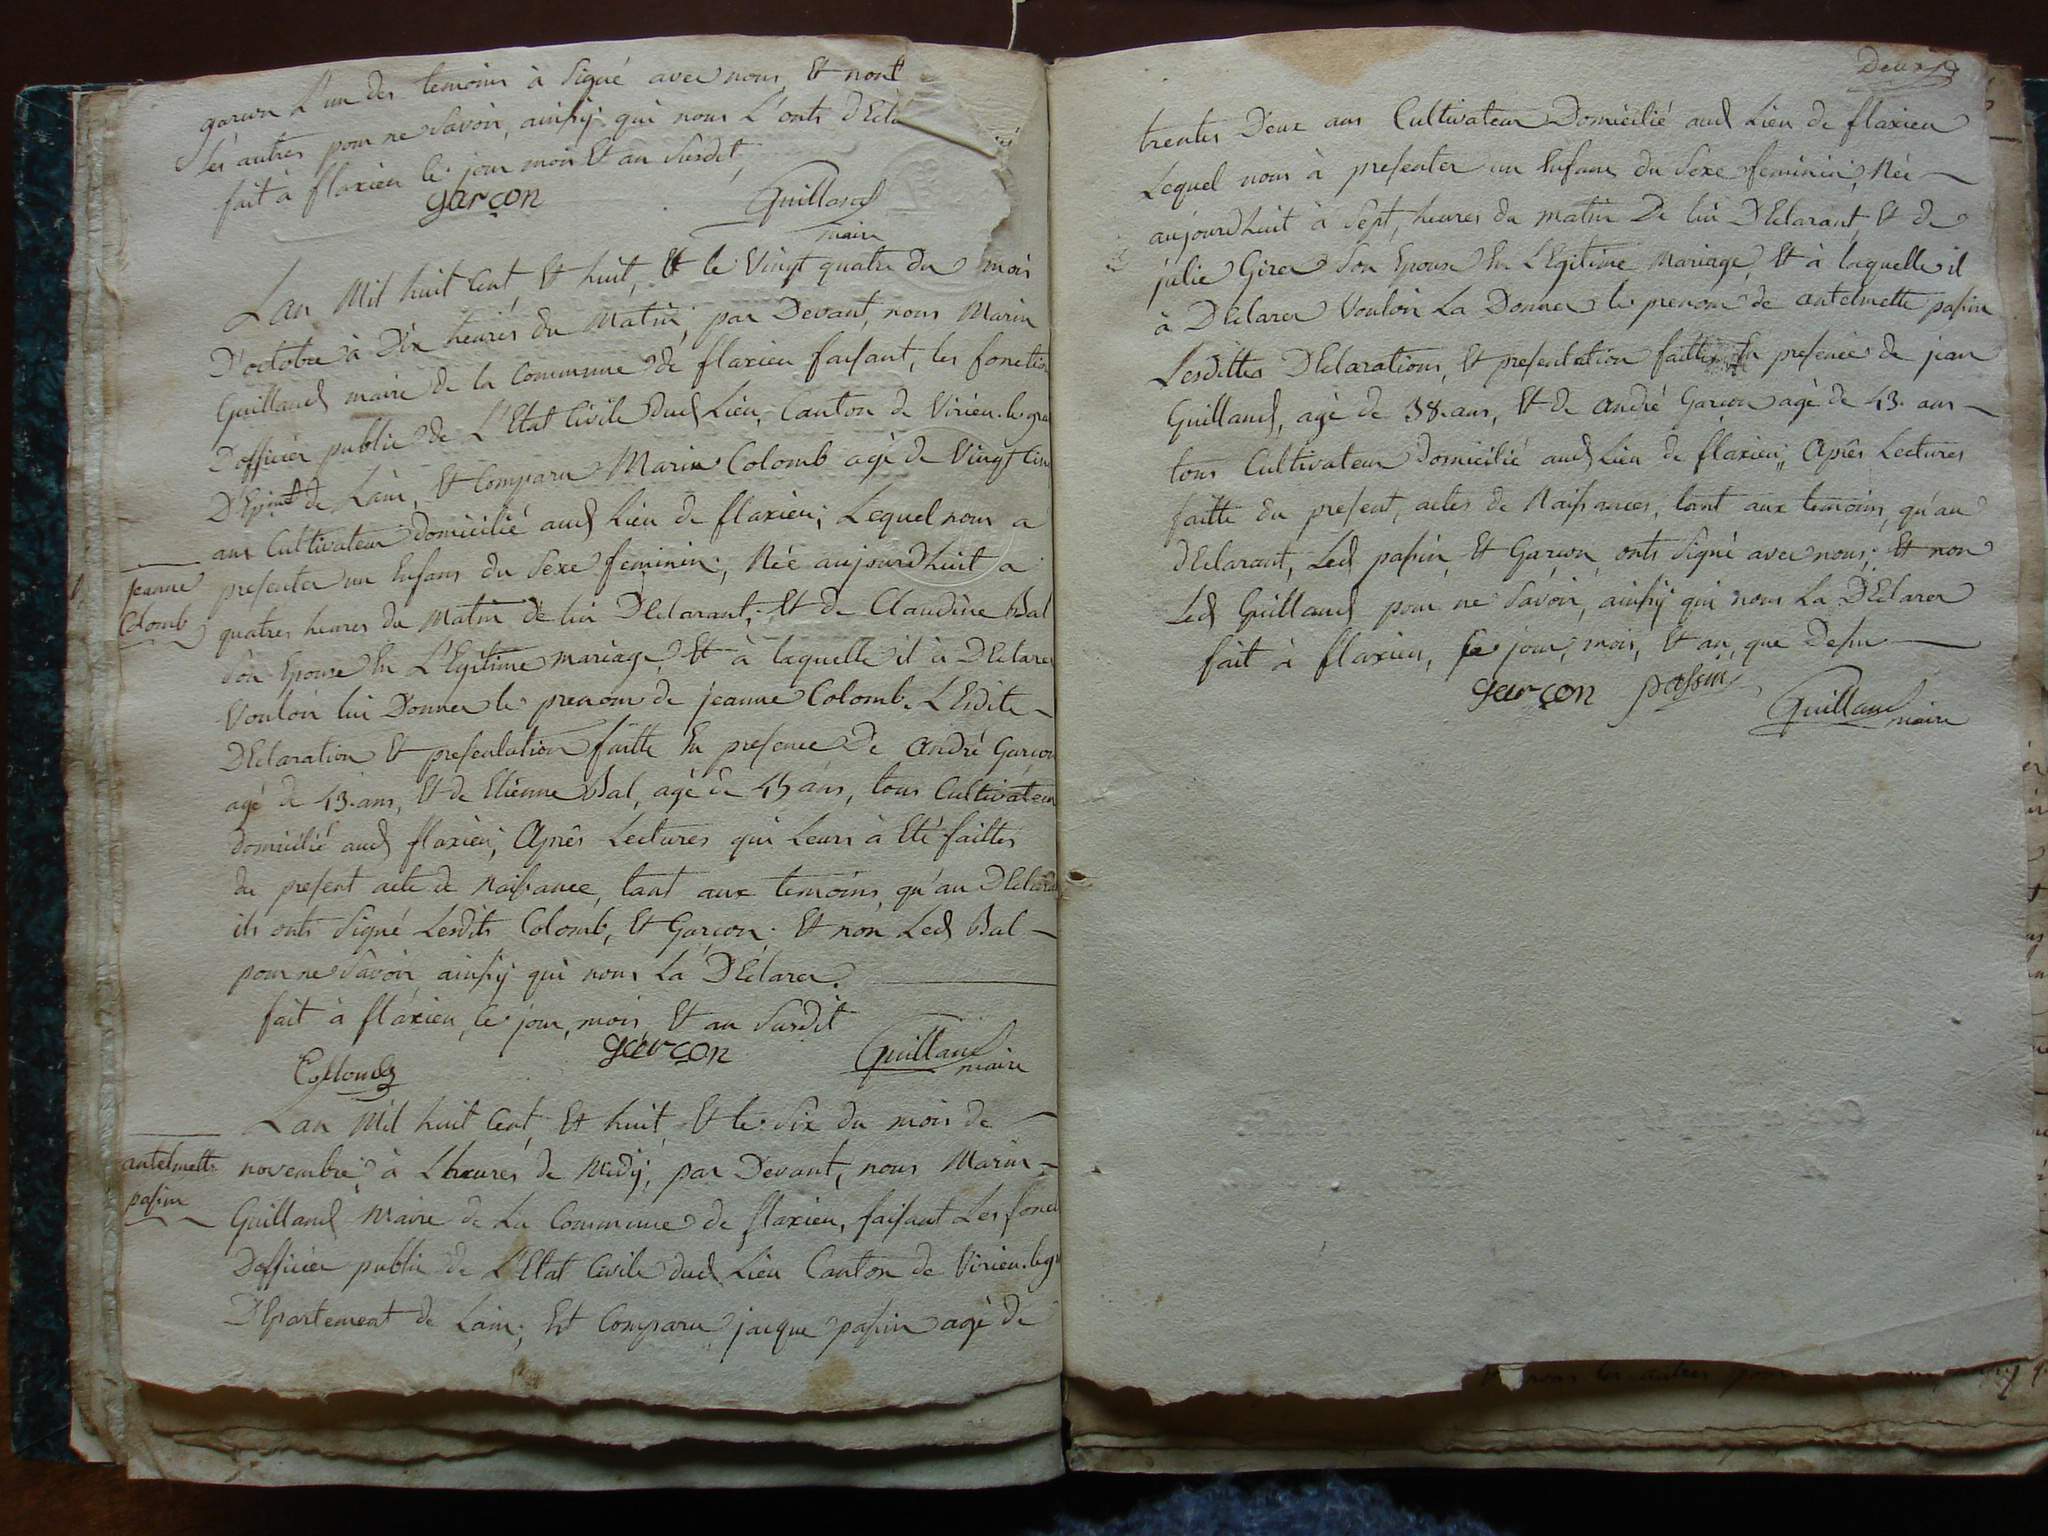 garcon L'un des temoins à Signé avec nous, Et nont
les autres pour ne Savoir, ainsÿ qui nous L'onts d'Ecla
fait à flaxieu le jour mois Et an Susdit
garçon Guilland
maire
Lan Mil huit Cent, Et huit, Et le Vingt quatre du mois
D'octobre à Dix heures du Matin, par Devant, nous Marin
Guilland maire de la Commune de flaxieu faisant, les fonction
D'officier public de L'Etat Civile dud Lieu, Canton de Virieu-le-gra
de Lain, Et Comparu Marin Colomb agé de Vingt Cin
ans Cultivateur domicilié aud Lieu de flaxieu; Lequel nous a
jeanne
Colomb
presenter un Enfans du Sexe feminin, Née aujourdhuit a
quatres heures du Matin de lui D'Eclarant, Et de Claudine Bal
Son Epouse En L'Egitime mariage, Et à laquelle il à D'Eclarer
Vouloir lui Donner le prenom de jeanne Colomb. L'Esdite
D'Eclaration Et presentation faitte En presence De André Garçon
agé de 43. ans, Et de Etienne Bal, agé de 45 ans, tous Cultivateur
domicilié aud flaxieu; Après Lectures qui Leurs à Eté faittes
du present acte de Naissance, tant aux temoins, qu'au D'Eclara
ils onts Signé Lesdits Colomb, Et Garçon; Et non Led Bal
pour ne Savoir, ainsÿ qui nous La D'Eclarer.
fait à flaxieu, le jour, mois, Et an Susdit
Collomb garçon Guilland
maire
Lan Mil huit Cent, Et huit, Et le Six du mois de
antelmette
passin
novembre à L'heures de Midÿ, par Devant, nous Marin
Guilland Maire de La Commune de flaxieu, faisant Les fonct
D'officier public de L'Etat Civile dud Lieu Canton de Virieu-le-g
D'Epartement de Lain; Est Comparu jacque passin agé de
Deux
trentes Deux ans Cultivateur Domicilié aud Lieu de flaxieu
Lequel nous à presenter un Enfans du Sexe feminin, Née
aujourdhuit à Sept, heures du matin De lui D'Eclarant, Et de
julie Girer Son Epouse En L'Egitime Mariage, Et à laquelle il
à D'Eclarer Vouloir La Donner le prenom de antelmette passin
Lesdittes D'Eclarations, Et presentation faittes En presence de jean
Guilland, agé de 38. ans, Et de André Garçon agé de 43. ans
tous Cultivateur domicilié aud Lieu de flaxieu, Après Lectures
faitte du present, actes de Naissances, tant aux temoins, qu'au
d'Eclarant, Led passin, Et Garçon, onts Signé avec nous; Et non
Led Guilland pour ne Savoir, ainsÿ qui nous La D'Eclarer
fait à flaxieu, le jour, mois, Et an, que Desu
garçon passin Guilland
maire